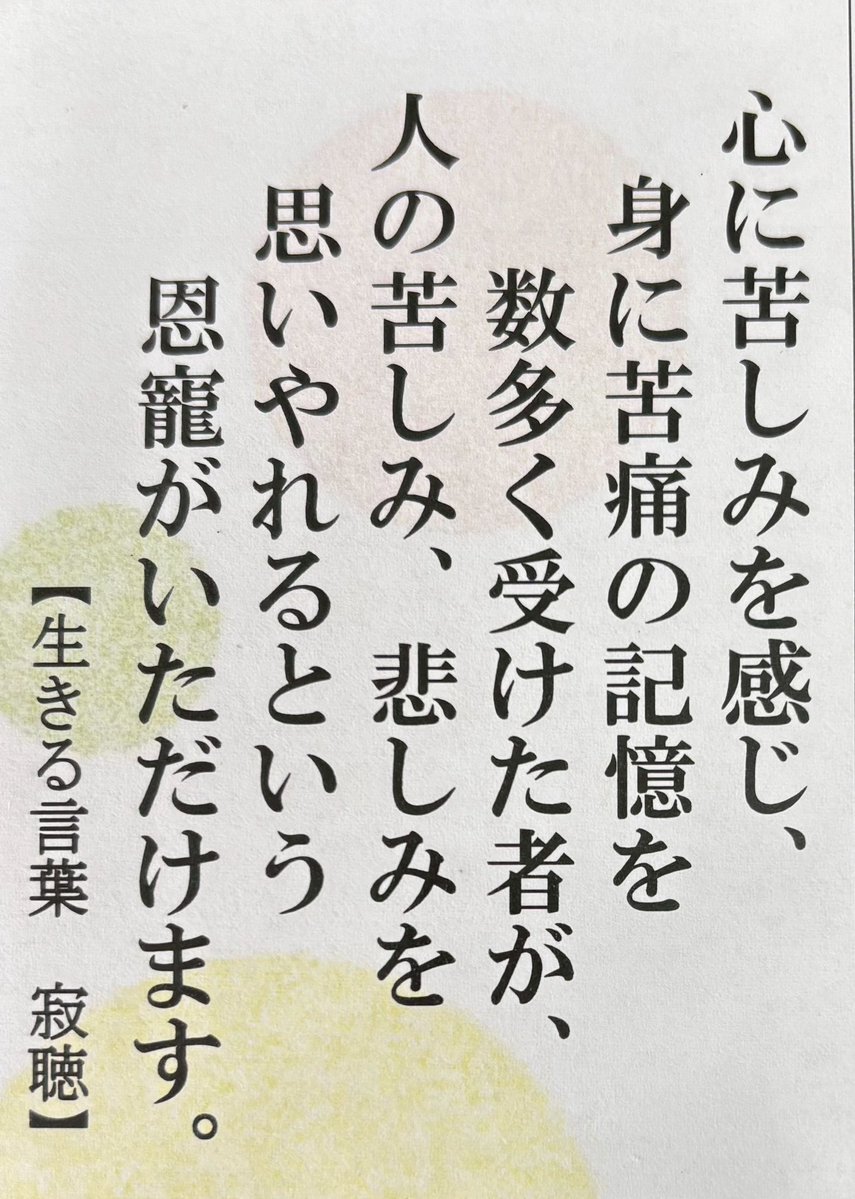 心に苦しみを感じ、
身に苦痛の記憶を
数多く受けた者が、
人の苦しみ、悲しみを
思いやれるという
恩寵がいただけます。
【生きる言葉　寂聴】